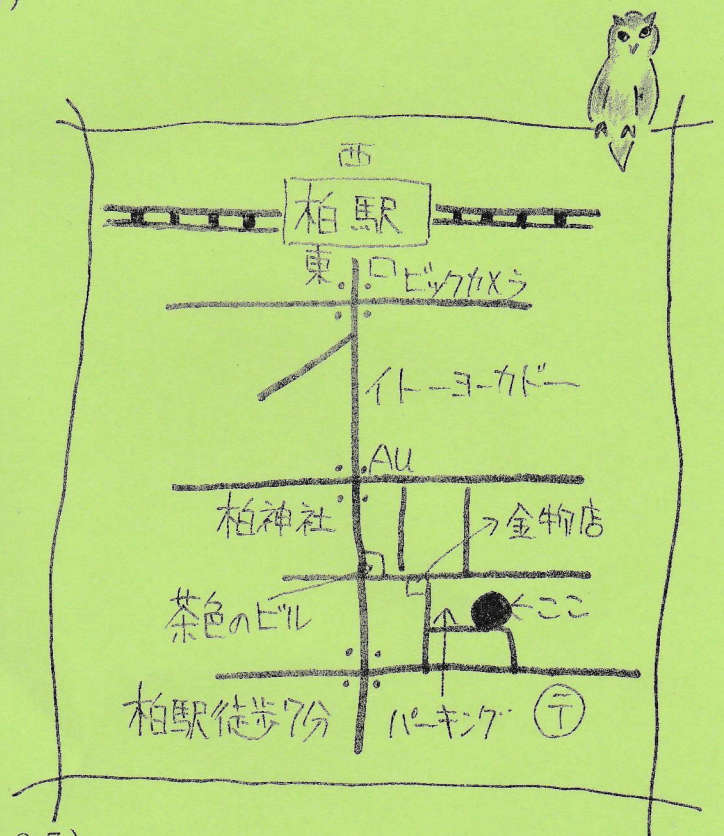 西
柏駅
東口ビックカメラ
イトーヨーカドー
Au
柏神社
金物店
茶色のビル
←ここ
柏駅徒歩7分
パーキング
〒